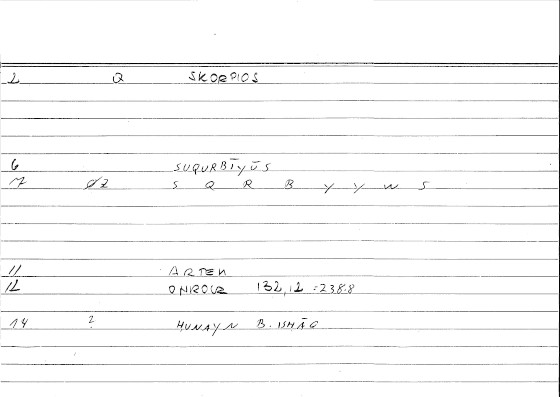 2 Q SKORPIOS
6 SUQURBĪYŪS
7 02 S Q R B Y Y W S
11 ARTEM
12 ONIROCR 132,12 = 238.8
14 ? HUNAYN B. ISHĀQ